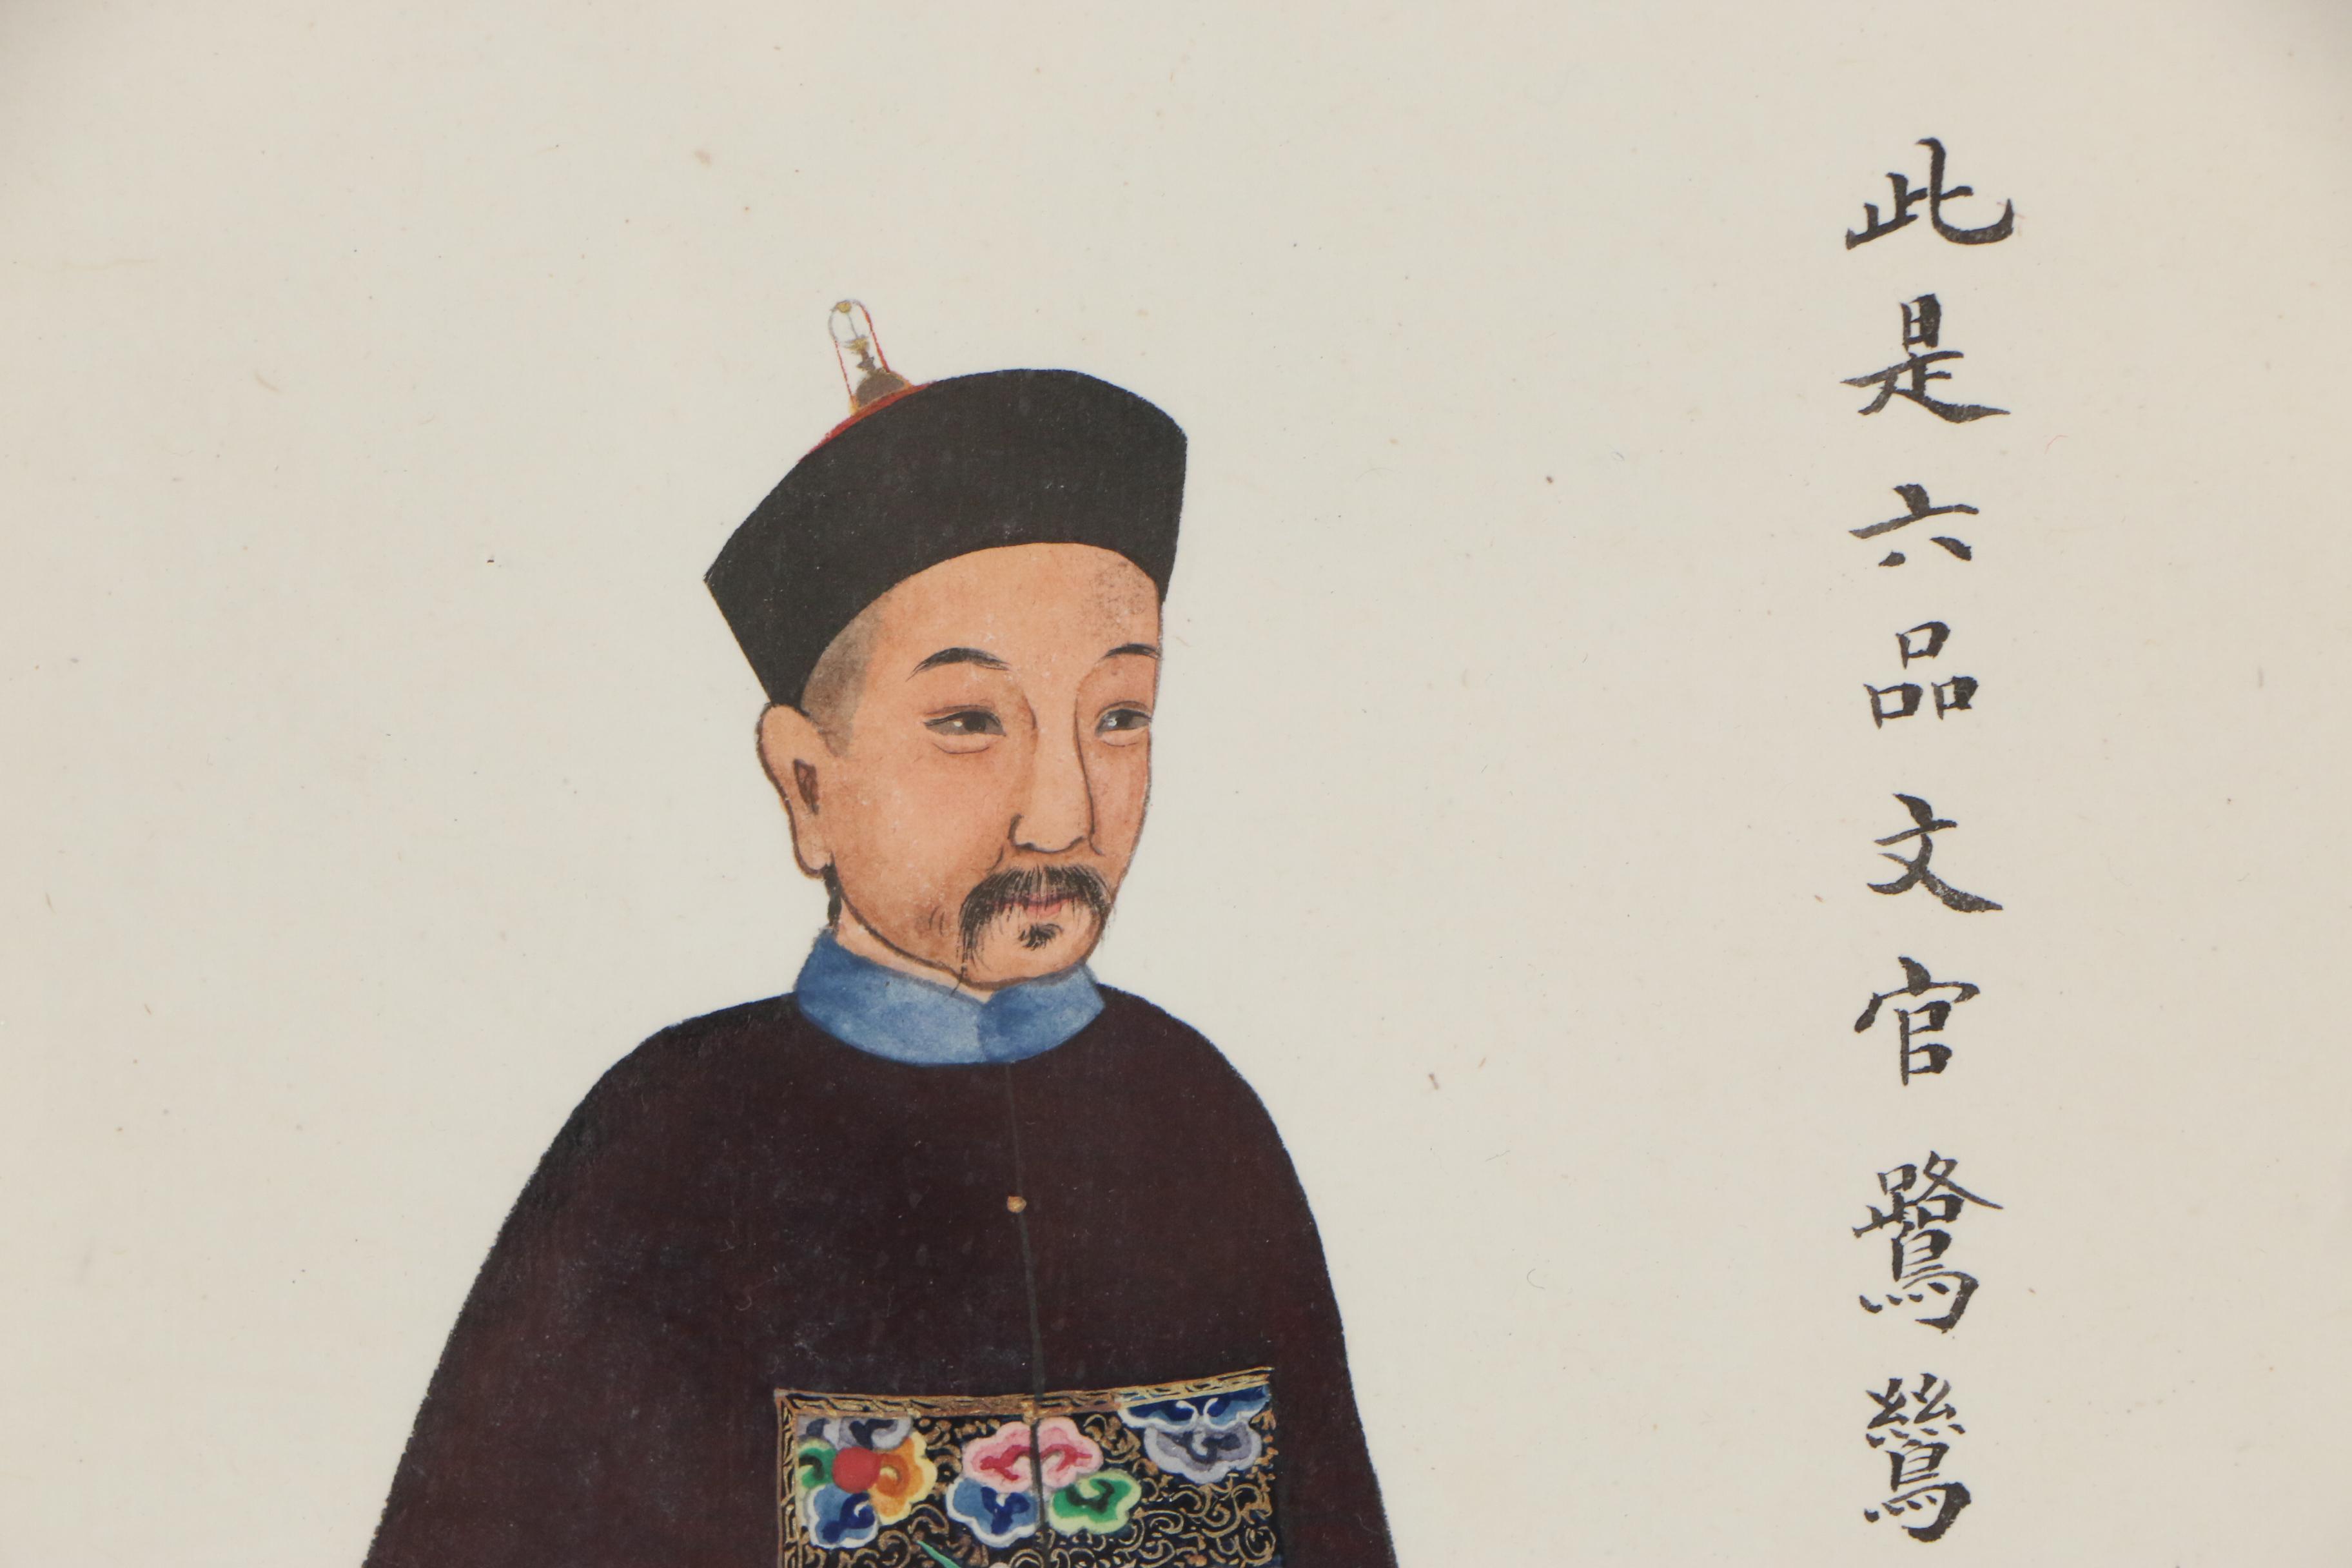 此是六品文官鷺鷥